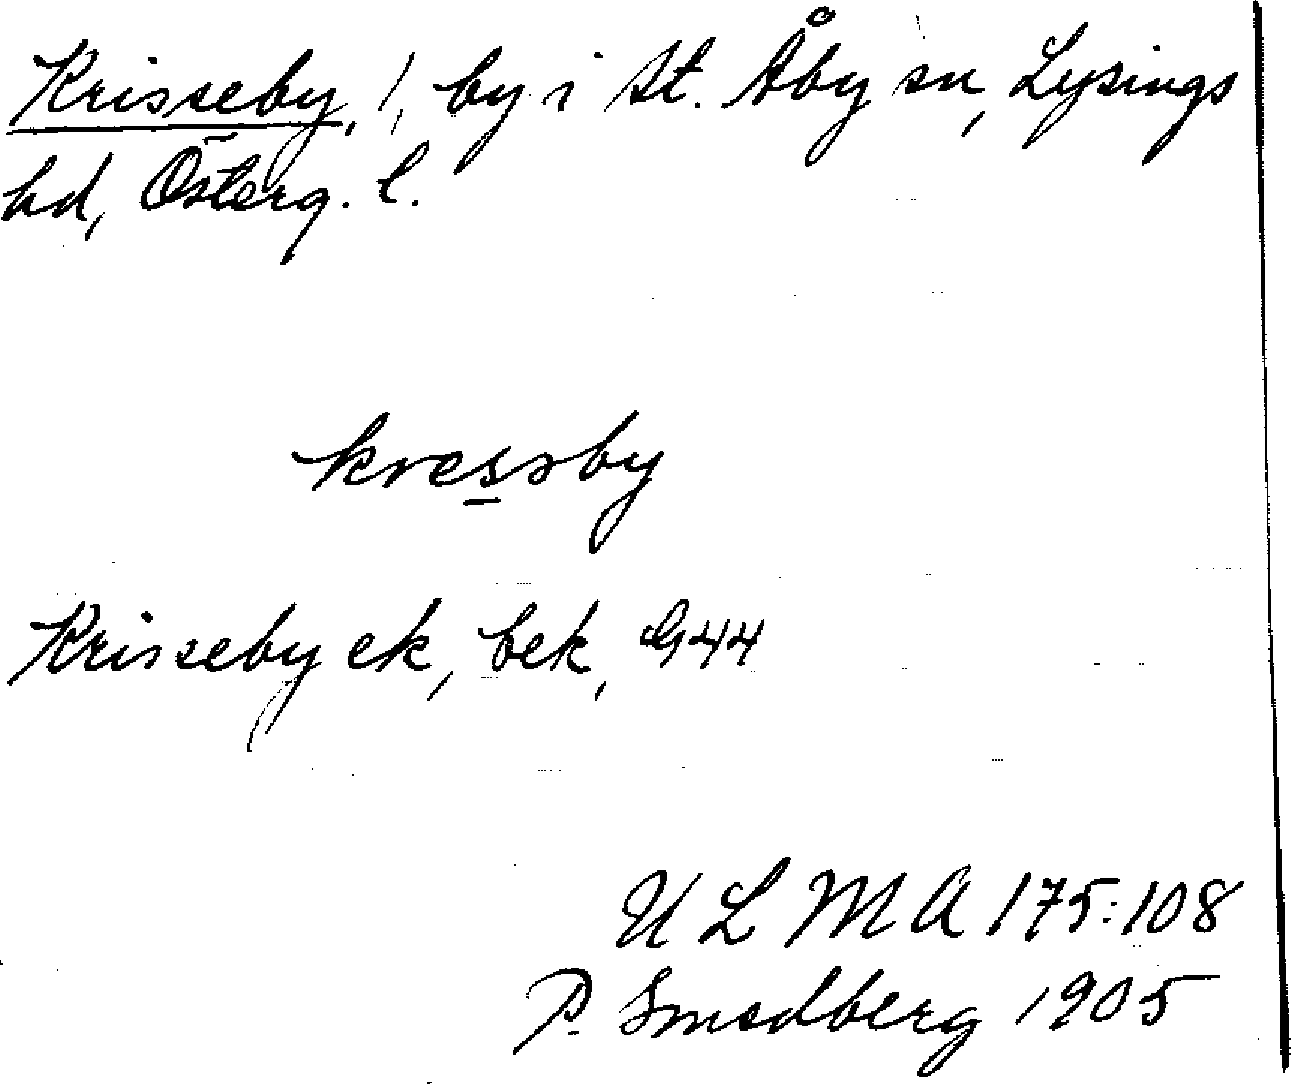 Krisseby, !, by i St. Åby sn, Lysings
hd, Österg. l.
kressby
Krisseby ek, bek, G44
U L M A 175:108
P. Smedberg 1905